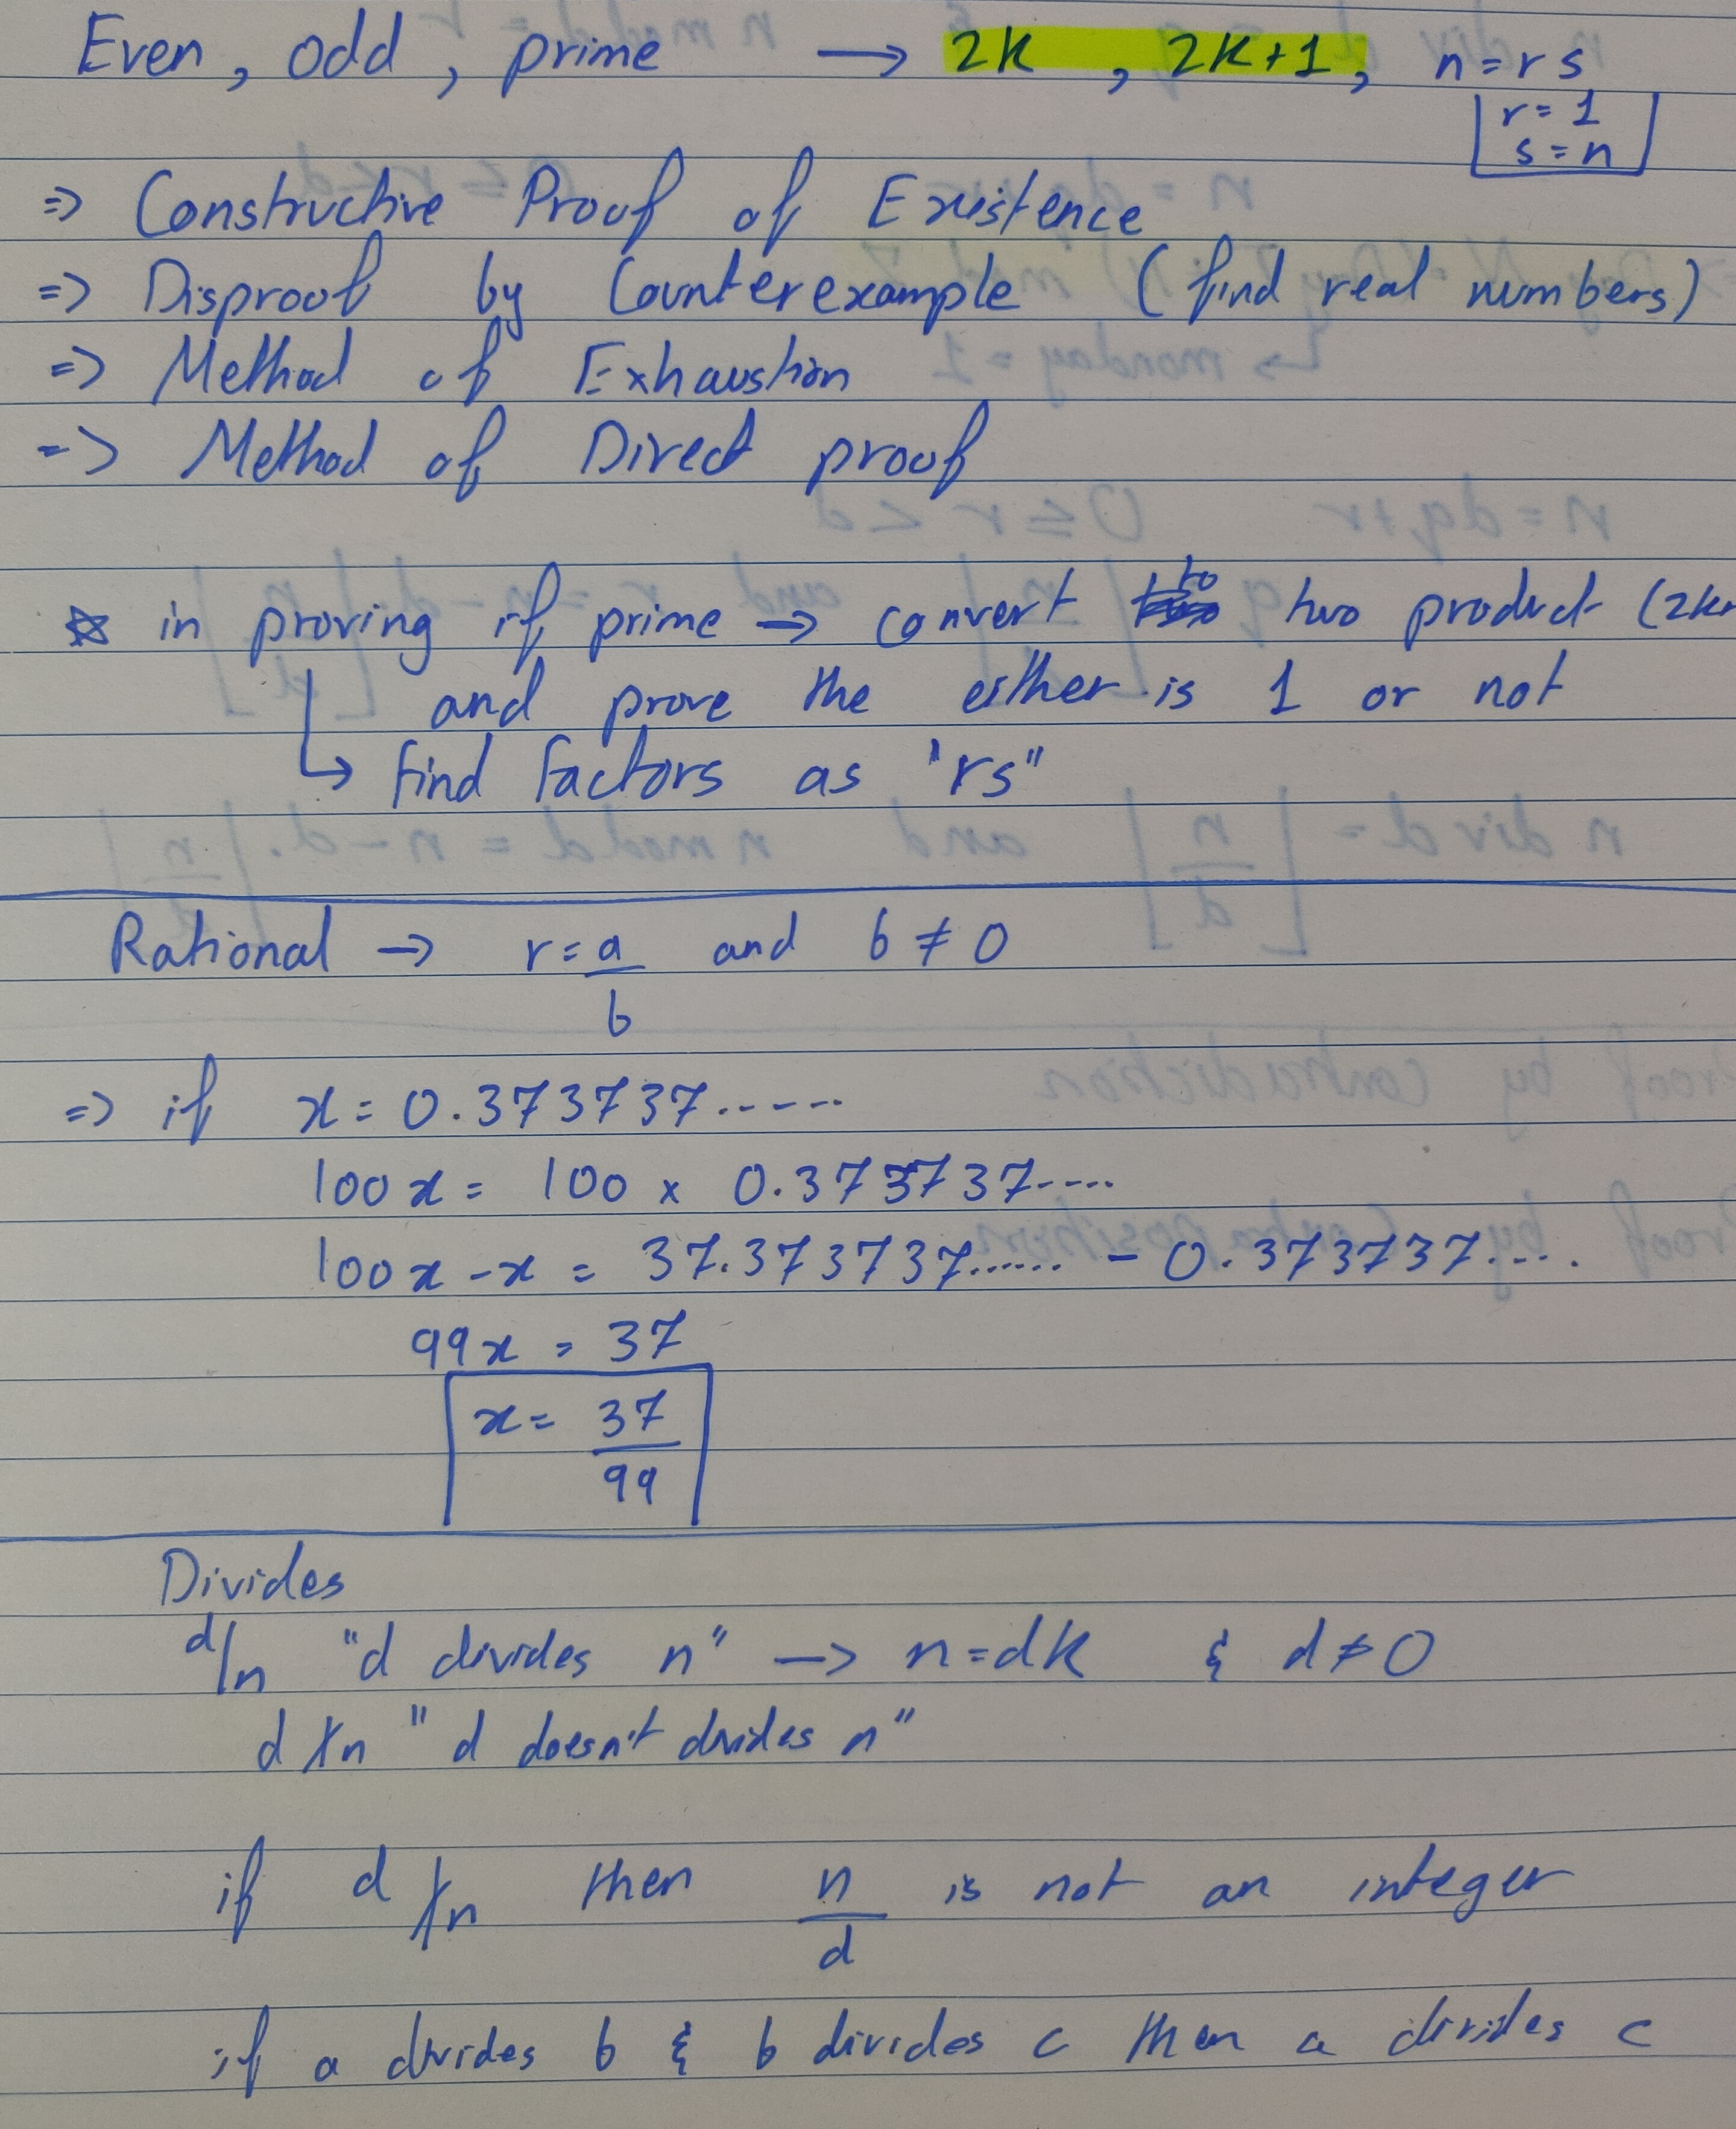 Even, odd, prime → 2k, 2k+1, n=rs
r=1
s=n
=> Constructive Proof of Existence
=> Disproof by Counterexample (find real numbers)
=> Method of Exhaustion
=> Method of Direct proof
☆ in proving if prime → convert to two product (2k
and prove the either is 1 or not
↳ find factors as 'rs"
Rational → r = a/b and b ≠ 0
=> if x = 0.373737......
100x = 100 x 0.373737....
100x - x = 37.373737...... - 0.373737....
99x = 37
x = 37/99
Divides
d/n "d divides n" → n=dk & d≠0
d ∤ n "d doesn't divides n"
if d ∤ n then n/d is not an integer
if a divides b & b divides c then a divides c